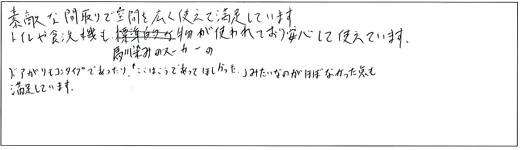 素敵な間取りで空間を広く使えて満足しています
トイレや食洗機も標準的な物が使われており安心して使えています。
馴染みのメーカーの
ドアがリモコンタイプであったり、「ここはこうであってほしかった」みたいなのがほぼなかった点も
満足しています。